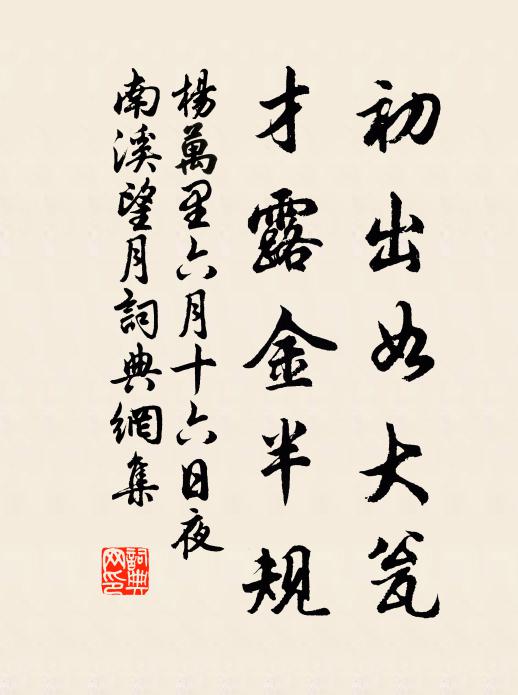 初出如大瓮
才露金半規
楊萬里六月十六日夜
南溪望月詞典網集
詞典
网印